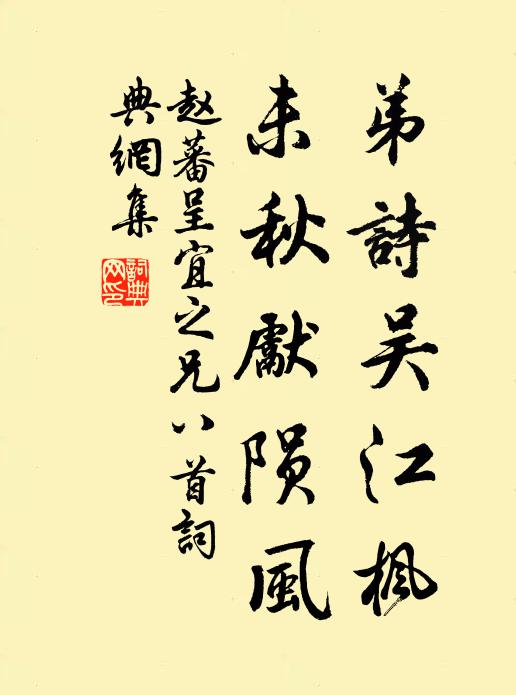 弟詩吴江楓
未秋獻陨風
赵蕃呈宜之兄八首詞
典網集
詞典网印